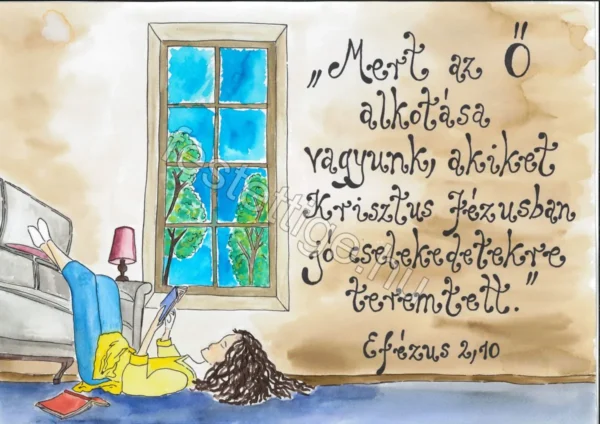 „Mert az Ő
alkotása
vagyunk, akiket
Krisztus Jézusban
jó cselekedetekre
teremtett.”
Efézus 2,10
festettige.hu